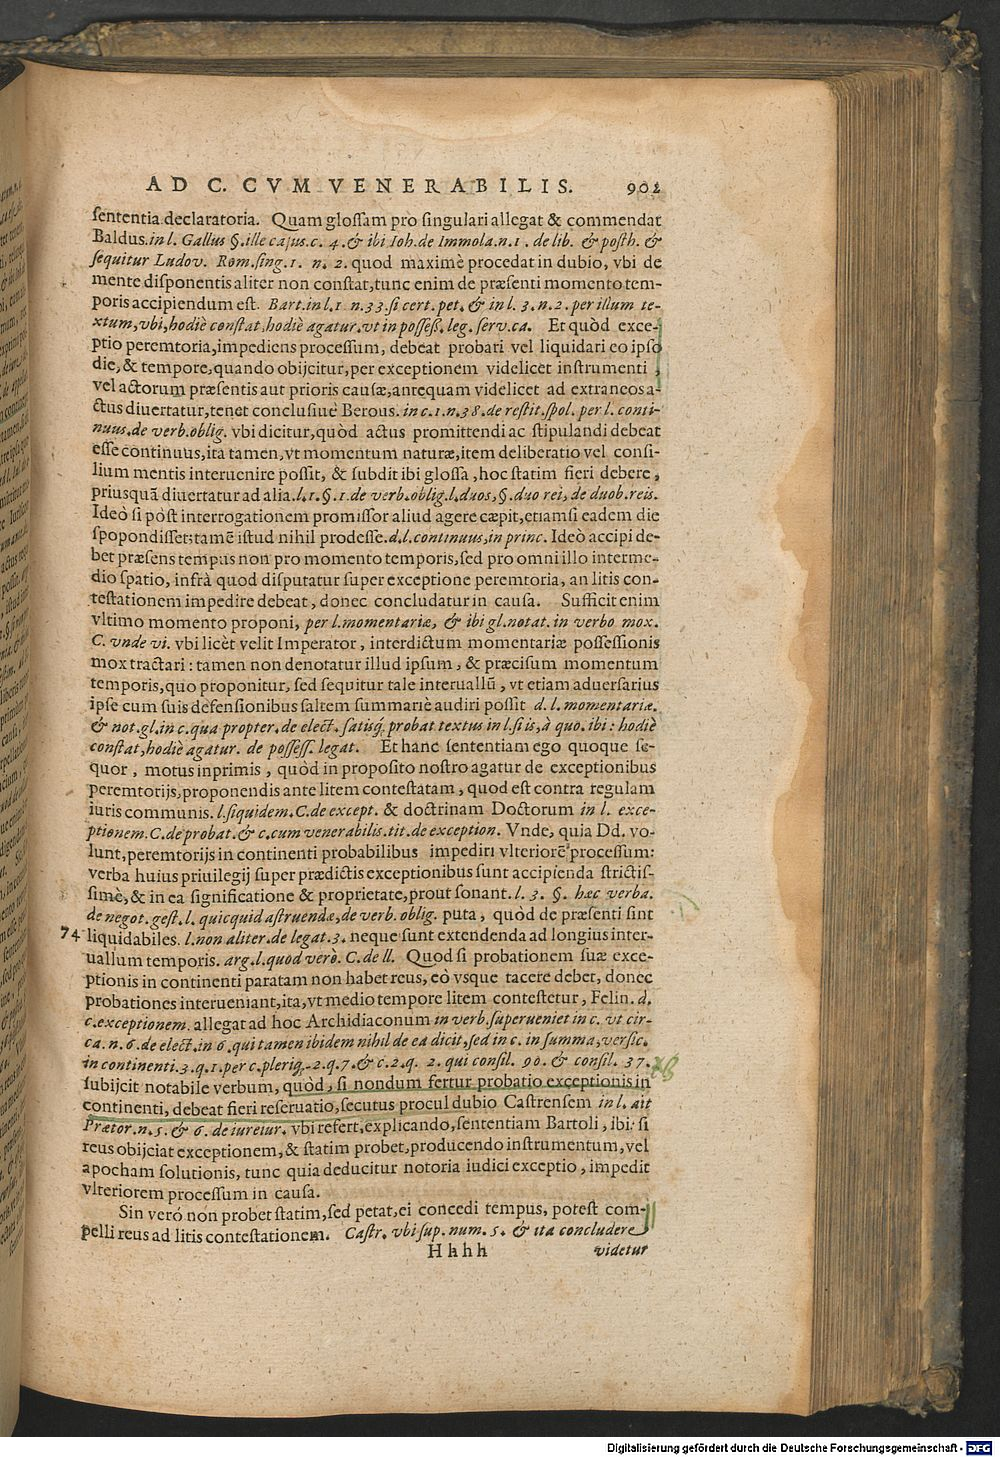 AD C. CVM VENERABILIS. 902
sententia declaratoria. Quam glossam pro singulari allegat & commendat
Baldus. in l. Gallus §. ille casus. c. 4. & ibi Ioh. de Immola. n. 1. de lib. & posth. &
sequitur Ludov. Rom. sing. 1. n. 2. quod maximè procedat in dubio, vbi de
mente disponentis aliter non constat, tunc enim de præsenti momento tem-
poris accipiendum est. Bart. in l. 1 n. 33. si cert. pet. & in l. 3. n. 2. per illum te-
xtum, vbi, hodiè constat, hodiè agatur. vt in posseß. leg. serv. ca. Et quòd exce-
ptio peremtoria, impediens processum, debeat probari vel liquidari eo ipso
die, & tempore, quando obijcitur, per exceptionem videlicet instrumenti,
vel actorum præsentis aut prioris causæ, antequam videlicet ad extraneos a-
ctus diuertatur, tenet conclusiuè Berous. in c. 1. n. 38. de restit. spol. per l. conti-
nuus. de verb. oblig. vbi dicitur, quòd actus promittendi ac stipulandi debeat
esse continuus, ita tamen, vt momentum naturæ, item deliberatio vel consi-
lium mentis interuenire possit, & subdit ibi glossa, hoc statim fieri debere,
priusquā diuertatur ad alia. l. 1. §. 1. de verb. oblig. l. duos, §. duo rei, de duob. reis.
Ideò si pòst interrogationem promissor aliud agere cæpit, etiamsi eadem die
spopondisset; tamē istud nihil prodesse. d. l. continuus, in princ. Ideò accipi de-
bet præsens tempus non pro momento temporis, sed pro omni illo interme-
dio spatio, infrà quod disputatur super exceptione peremtoria, an litis con-
testationem impedire debeat, donec concludatur in causa. Sufficit enim
vltimo momento proponi, per l. momentariæ, & ibi gl. notat. in verbo mox.
C. vnde vi. vbi licèt velit Imperator, interdictum momentariæ possessionis
mox tractari: tamen non denotatur illud ipsum, & præcisum momentum
temporis, quo proponitur, sed sequitur tale interuallū, vt etiam aduersarius
ipse cum suis defensionibus saltem summariè audiri possit d. l. momentariæ.
& not. gl. in c. qua propter. de elect. satisq́; probat textus in l. si is, à quo. ibi: hodiè
constat, hodiè agatur. de possess. legat. Et hanc sententiam ego quoque se-
quor, motus inprimis, quòd in proposito nostro agatur de exceptionibus
peremtorijs, proponendis ante litem contestatam, quod est contra regulam
iuris communis. l. siquidem. C. de except. & doctrinam Doctorum in l. exce-
ptionem. C. de probat. & c. cum venerabilis. tit. de exception. Vnde, quia Dd. vo-
lunt, peremtorijs in continenti probabilibus impediri vlteriorē processum:
verba huius priuilegij super prædictis exceptionibus sunt accipienda strictis-
simè, & in ea significatione & proprietate, prout sonant. l. 3. §. hæc verba.
de negot. gest. l. quicquid astruendæ, de verb. oblig. puta, quòd de præsenti sint
74 liquidabiles. l. non aliter. de legat. 3. neque sunt extendenda ad longius inter-
uallum temporis. arg. l. quod verò. C. de ll. Quod si probationem suæ exce-
ptionis in continenti paratam non habet reus, eò vsque tacere debet, donec
probationes interueniant, ita, vt medio tempore litem contestetur, Felin. d.
c. exceptionem. allegat ad hoc Archidiaconum in verb. superueniet in c. vt cir-
ca. n. 6. de elect. in 6. qui tamen ibidem nihil de ea dicit, sed in c. in summa, versic.
in continenti. 3. q. 1. per c. pleriq́. 2. q. 7. & c. 2. q. 2. qui consil. 90. & consil. 37.
subijcit notabile verbum, quòd, si nondum fertur probatio exceptionis in
continenti, debeat fieri reseruatio, secutus procul dubio Castrensem in l. ait
Prætor. n. 5. & 6. de iureiur. vbi refert, explicando, sententiam Bartoli, ibi: si
reus obijciat exceptionem, & statim probet, producendo instrumentum, vel
apocham solutionis, tunc quia deducitur notoria iudici exceptio, impedit
vlteriorem processum in causa.
Sin verò non probet statim, sed petat, ei concedi tempus, potest com-
pelli reus ad litis contestationem. Castr. vbi sup. num. 5. & ita concludere
Hhhh videtur
Digitalisierung gefördert durch die Deutsche Forschungsgemeinschaft - DFG